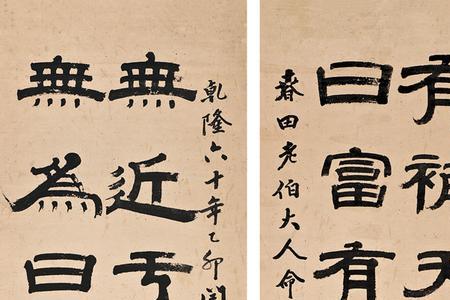 有
曰富有
春田老伯大人命
乾隆六十年乙卯閏
無近亏
無為曰